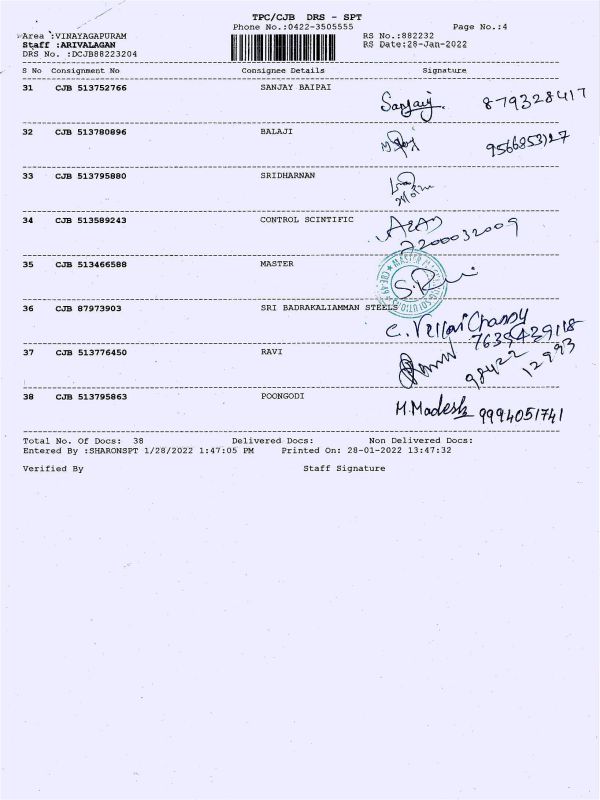 TPC/CJB DRS - SPT
Phone No.:0422-3505555 Page No.:4
Area :VINAYAGAPURAM RS No.:882232
Staff :ARIVALAGAN RS Date:28-Jan-2022
DRS No. :DCJB88223204
S No Consignment No Consignee Details Signature
31 CJB 513752766 SANJAY BAIPAI
Sanjay 879328417
32 CJB 513780896 BALAJI
9566853127
33 CJB 513795880 SRIDHARNAN
34 CJB 513589243 CONTROL SCINTIFIC
2200032009
35 CJB 513466588 MASTER
MASTER SOLUTIONS
36 CJB 87973903 SRI BADRAKALIAMMAN STEELS
7639429118
37 CJB 513776450 RAVI
98422
12993
38 CJB 513795863 POONGODI
M.Madesh 9994051741
Total No. Of Docs: 38 Delivered Docs: Non Delivered Docs:
Entered By :SHARONSPT 1/28/2022 1:47:05 PM Printed On: 28-01-2022 13:47:32
Verified By Staff Signature